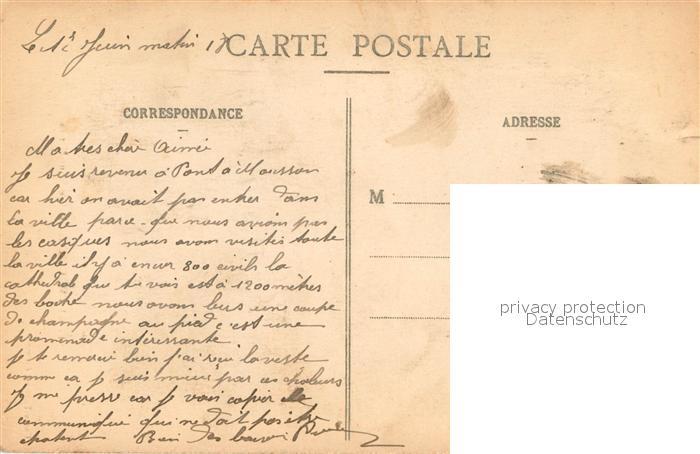 Le 1r Juin matin
CARTE POSTALE
CORRESPONDANCE
Ma tres cher Aimée
Je suis revenu a Pont a Mousson
car hier on avait pas entrer dans
la ville parce-que nous avions pas
les casques nous avons visites toute
la ville il y a encor 800 civils la
cathedral que tu vois est a 1200 mètres
des boche nous avons bus une coupe
de champagne au pied c'est une
promenade intéressante
je te remerci bien j'ai reçu la veste
comme ca je suis mieux par ces chaleurs
Je me presse car je vais copier le
communiqué qui ne doit pas être
Bien des baisers
ADRESSE
M
privacy protection
Datenschutz